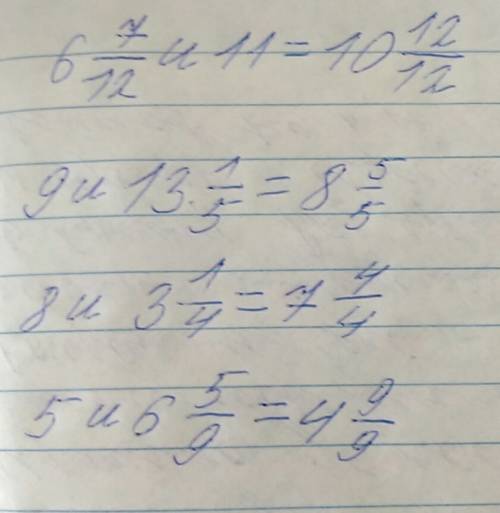 6 7/12 и 11 = 10 12/12
9 и 13 1/5 = 8 5/5
8 и 3 1/4 = 7 4/4
5 и 6 5/9 = 4 9/9